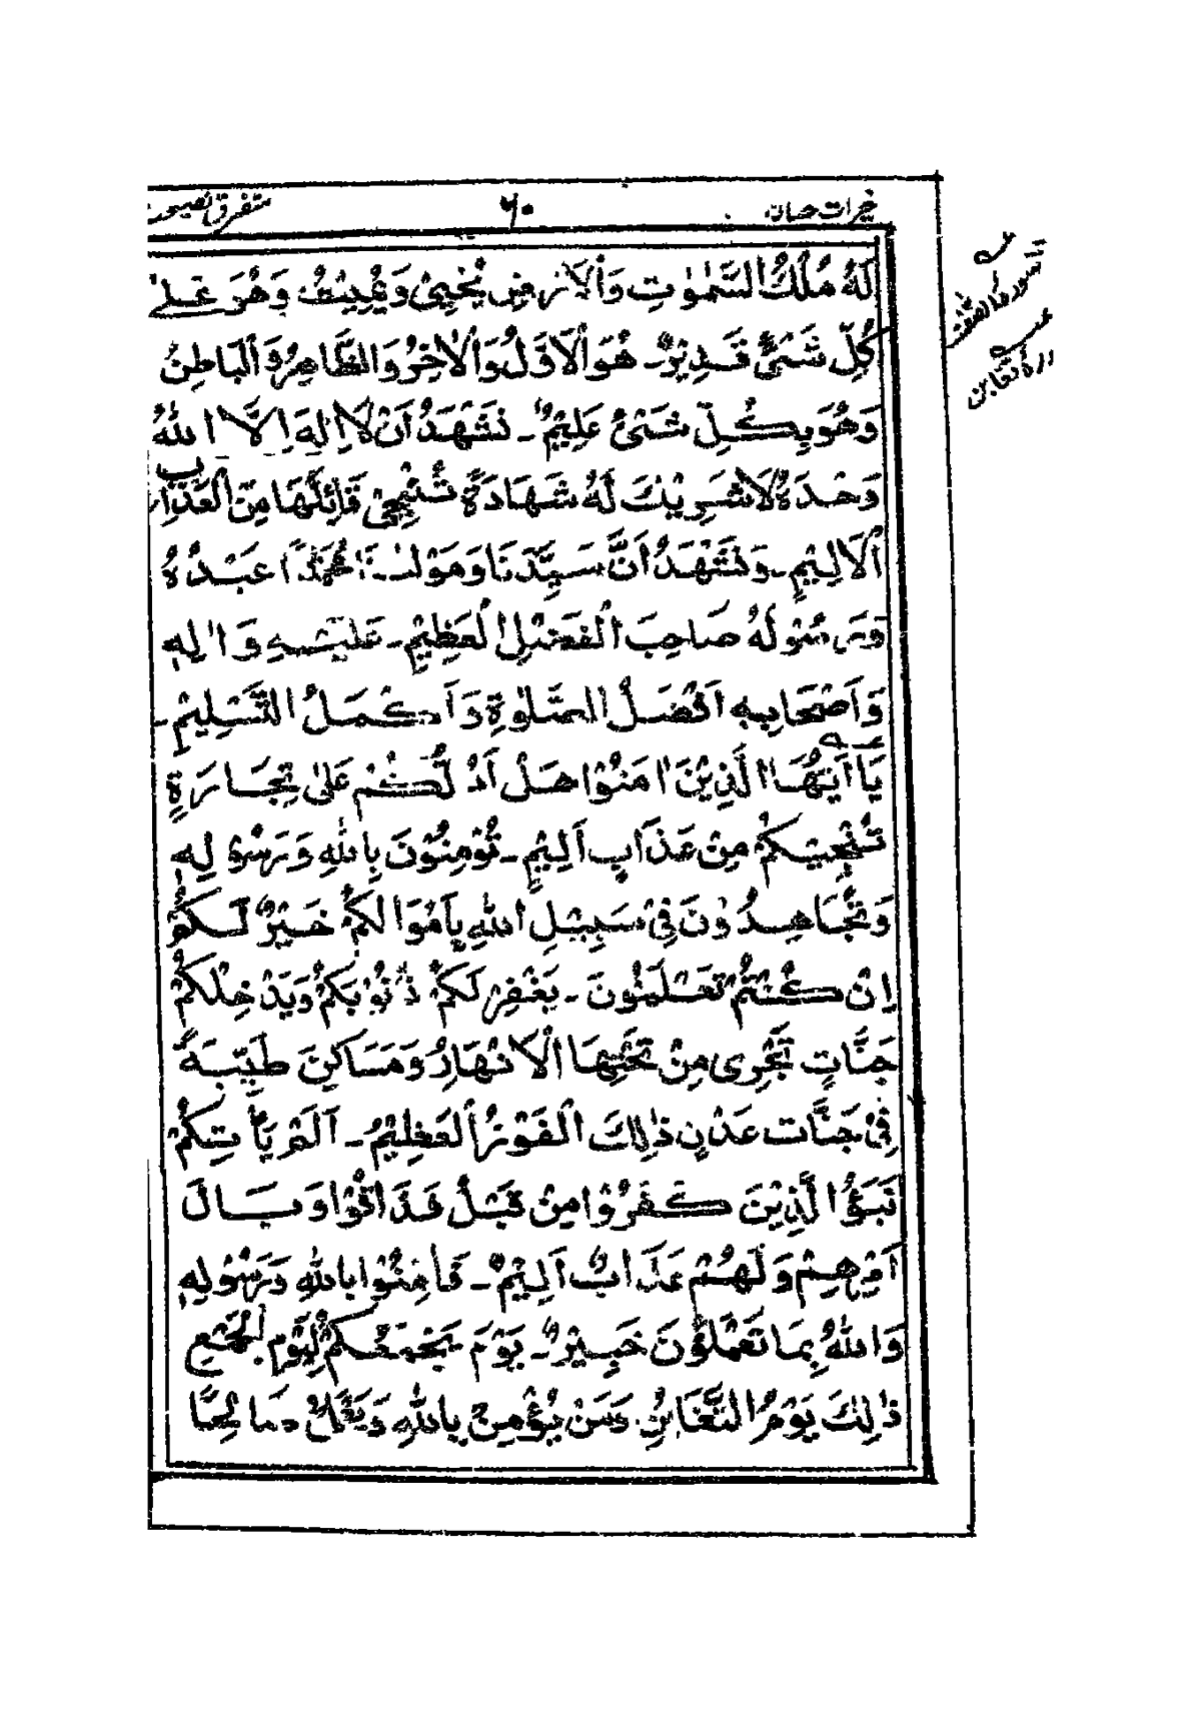 خیرات حسان ۶۰ متفرق نصیحت
لَهُ مُلْكُ السَّمٰوٰتِ وَالْاَرْضِ يُحْيِیْ وَيُمِيْتُ وَهُوَ عَلٰی
كُلِّ شَیْءٍ قَدِيْرٌ۔ هُوَ الْاَوَّلُ وَالْاٰخِرُ وَالظَّاهِرُ وَالْبَاطِنُ
وَهُوَ بِكُلِّ شَیْءٍ عَلِيْمٌ۔ نَشْهَدُ اَنْ لَا اِلٰهَ اِلَّا اللّٰهُ
وَحْدَهٗ لَا شَرِيْكَ لَهُ شَهَادَةً تُنْجِیْ قَائِلَهَا مِنَ الْعَذَابِ
الْاَلِيْمِ۔ وَنَشْهَدُ اَنَّ سَيِّدَنَا وَمَوْلٰنَا مُحَمَّدًا عَبْدُهٗ
وَرَسُوْلُهٗ صَاحِبَ الْفَضْلِ الْعَظِيْمِ۔ عَلَيْهِ وَاٰلِهٖ
وَاَصْحَابِهٖ اَفْضَلُ الصَّلٰوةِ وَاَكْمَلُ التَّسْلِيْمِ۔
يَا اَيُّهَا الَّذِيْنَ اٰمَنُوْا هَلْ اَدُلُّكُمْ عَلٰی تِجَارَةٍ
تُنْجِيْكُمْ مِنْ عَذَابٍ اَلِيْمٍ۔ تُؤْمِنُوْنَ بِاللّٰهِ وَرَسُوْلِهٖ
وَتُجَاهِدُوْنَ فِیْ سَبِيْلِ اللّٰهِ بِاَمْوَالِكُمْ خَيْرٌ لَكُمْ
اِنْ كُنْتُمْ تَعْلَمُوْنَ۔ يَغْفِرْ لَكُمْ ذُنُوْبَكُمْ وَيُدْخِلْكُمْ
جَنَّاتٍ تَجْرِی مِنْ تَحْتِهَا الْاَنْهَارُ وَمَسَاكِنَ طَيِّبَةً
فِیْ جَنَّاتِ عَدْنٍ ذٰلِكَ الْفَوْزُ الْعَظِيْمُ۔ اَلَمْ يَأْتِكُمْ
نَبَؤُا الَّذِيْنَ كَفَرُوْا مِنْ قَبْلُ فَذَاقُوْا وَبَالَ
اَمْرِهِمْ وَلَهُمْ عَذَابٌ اَلِيْمٌ۔ فَاٰمِنُوْا بِاللّٰهِ وَرَسُوْلِهٖ
وَاللّٰهُ بِمَا تَعْمَلُوْنَ خَبِيْرٌ۔ يَوْمَ يَجْمَعُكُمْ لِيَوْمِ الْجَمْعِ
ذٰلِكَ يَوْمُ التَّغَابُنِ وَمَنْ يُؤْمِنْ بِاللّٰهِ وَيَعْمَلْ صَالِحًا